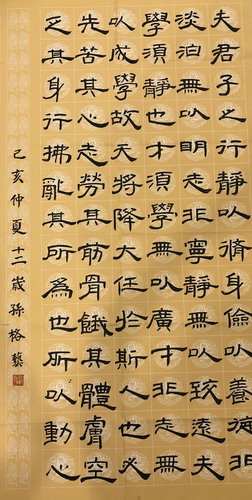 夫君子之行靜以修身儉以養德非
淡泊無以明志非寧靜無以致遠夫
學須靜也才須學無以廣才非志無
以成學故天將降大任於斯人也必
先苦其心志勞其筋骨餓其體膚空
乏其身行拂亂其所為也所以動心
己亥仲夏十二歲孫格藝